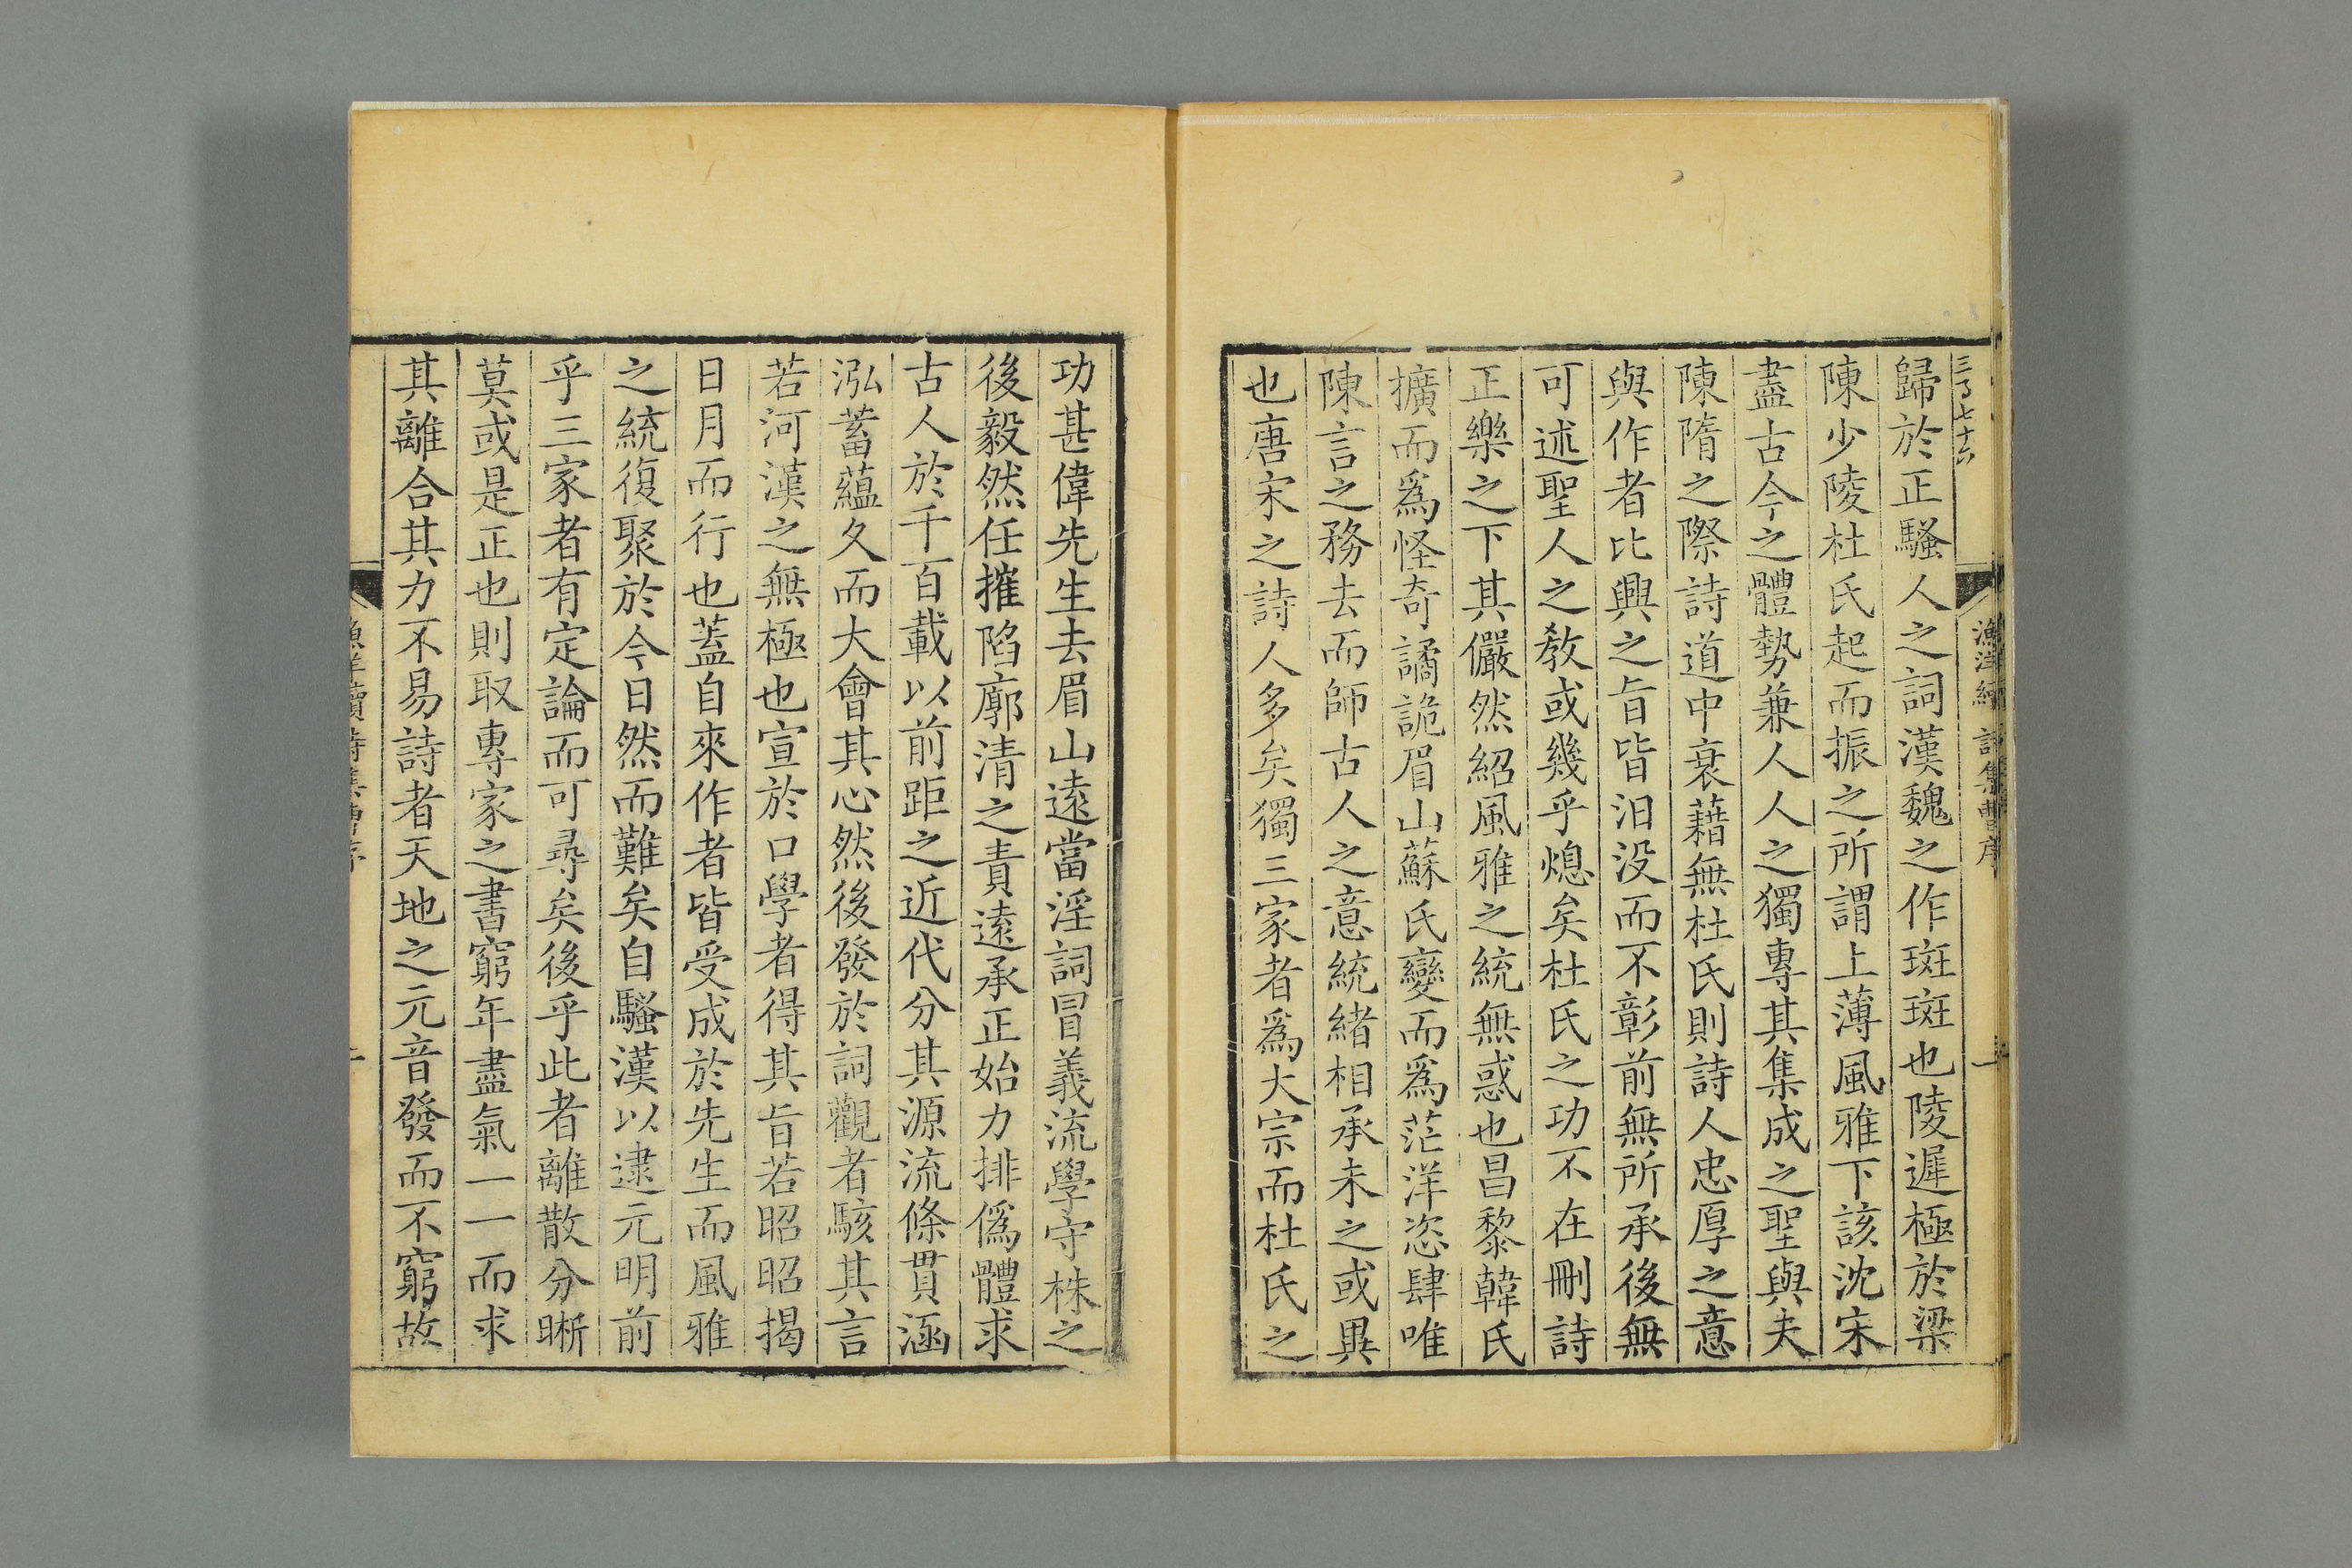 漁洋續詩集曹序
一
歸於正騷人之詞漢魏之作斑斑也陵遲極於梁
陳少陵杜氏起而振之所謂上薄風雅下該沈宋
盡古今之體勢兼人人之獨專其集成之聖與夫
陳隋之際詩道中衰藉無杜氏則詩人忠厚之意
與作者比興之旨皆汨没而不彰前無所承後無
可述聖人之教或幾乎熄矣杜氏之功不在刪詩
正樂之下其儼然紹風雅之統無惑也昌黎韓氏
擴而爲怪奇譎詭眉山蘇氏變而爲茫洋恣肆唯
陳言之務去而師古人之意統緒相承未之或異
也唐宋之詩人多矣獨三家者爲大宗而杜氏之
功甚偉先生去眉山遠當淫詞冒義流學守株之
後毅然任摧陷廓清之責遠承正始力排僞體求
古人於千百載以前距之近代分其源流條貫涵
泓蓄蘊久而大會其心然後發於詞觀者駭其言
若河漢之無極也宣於口學者得其旨若昭昭揭
日月而行也蓋自來作者皆受成於先生而風雅
之統復聚於今日然而難矣自騷漢以逮元明前
乎三家者有定論而可尋矣後乎此者離散分晰
莫或是正也則取專家之書窮年盡氣一一而求
其離合其力不易詩者天地之元音發而不窮故
漁洋續詩集曹序